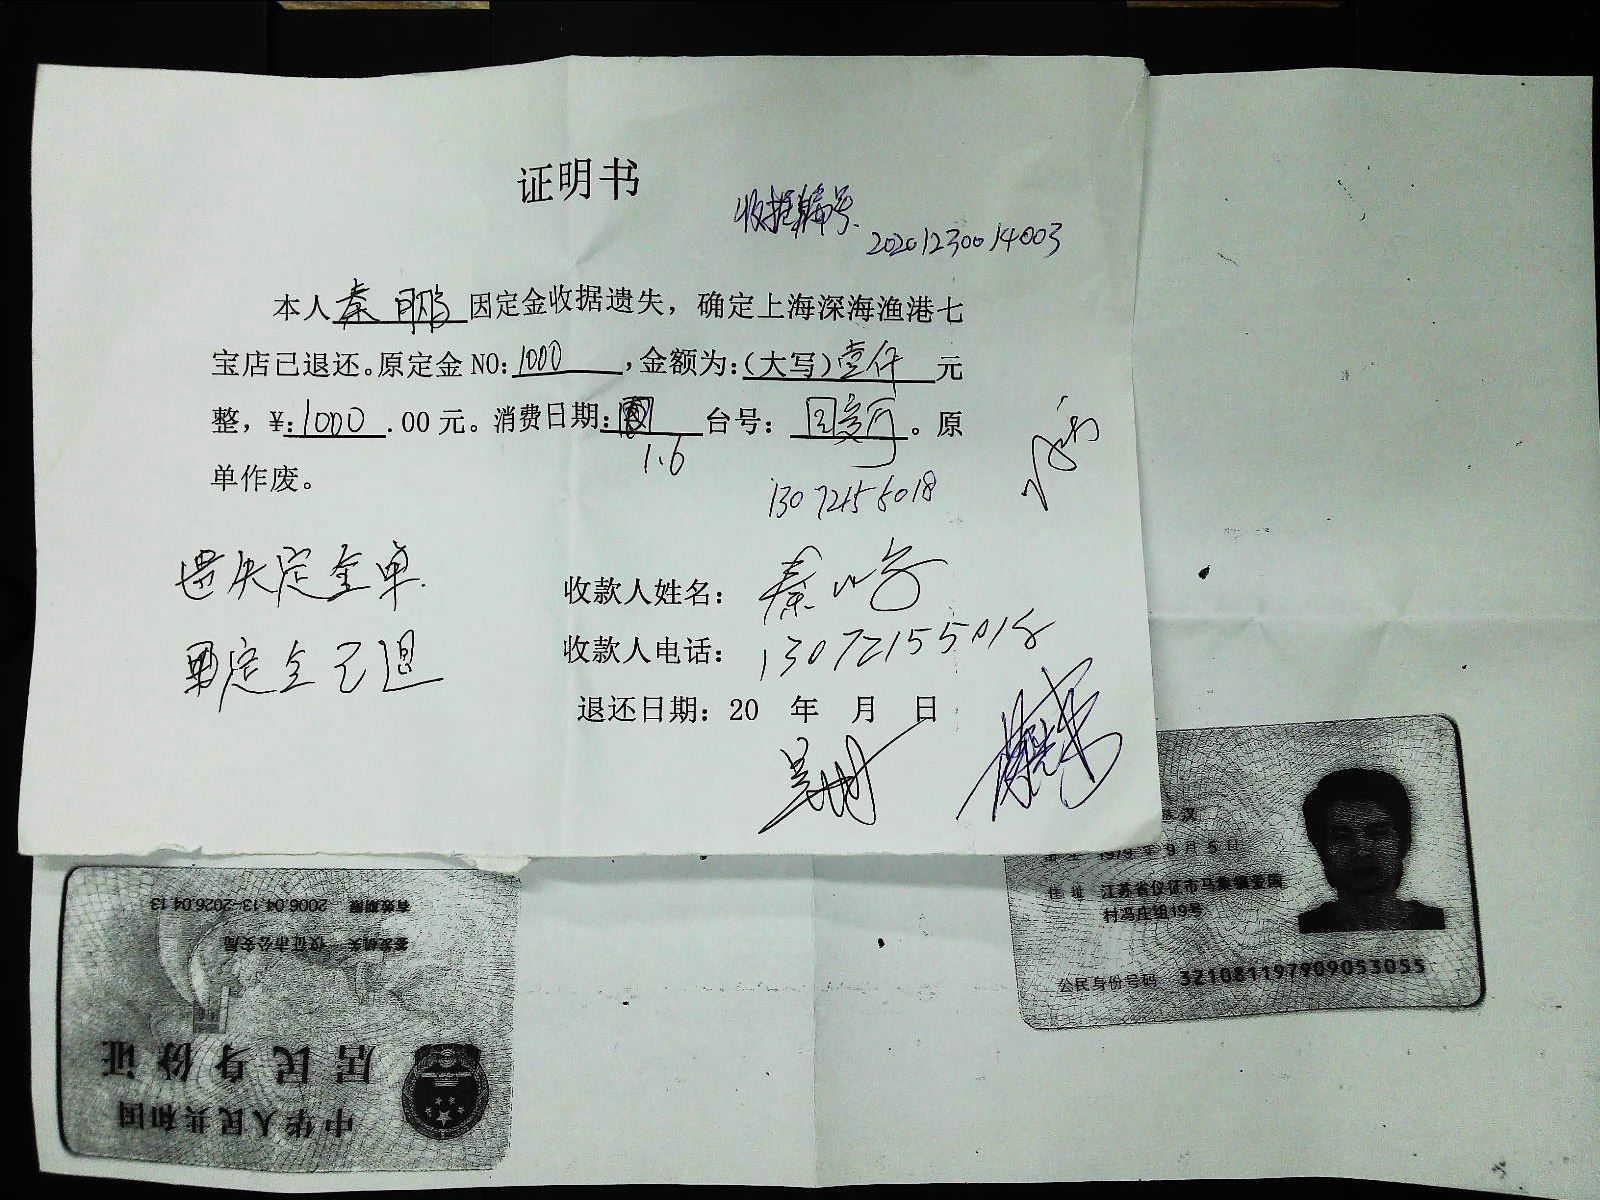 证明书
收据编号
20201230014003
本人秦鹏因定金收据遗失，确定上海深海渔港七
宝店已退还。原定金NO:1000，金额为:(大写)壹仟元
整，¥:1000.00元。消费日期: 台号: 。原
1.6
单作废。
13072155018
遗失定金单.
定金已退
收款人姓名：秦
收款人电话：13072155018
退还日期：20 年 月 日
汉
1979年9月5日
住址 江苏省仪征市马集镇爱国
村冯庄组19号
公民身份号码 321081197909053055
中华人民共和国
居民身份证
签发机关 仪征市公安局
有效期限 2006.04.13-2026.04.13